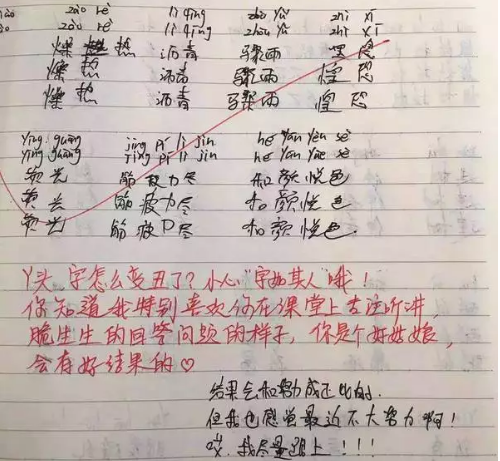 zào rè lì qīng zhòu yǔ zhì xī
zào rè lì qīng zhòu yǔ zhì xī
燥 热 沥青 骤雨
燥 热 沥青 骤雨 惶恐
燥 热 沥青 骤雨 惶恐
yíng guāng jīng pí lì jìn hé yán yuè sè
yíng guāng jīng pí lì jìn hé yán yuè sè
筋疲力尽 和颜悦色
筋疲力尽 和颜悦色
筋疲 尽 和颜悦色.
丫头,字怎么变丑了?小心"字如其人"哦!
你知道我特别喜欢你在课堂上专注听讲,
脆生生的回答问题的样子,你是个好姑娘,
会有好结果的♡
结果会和努力成正比的.
但我也感觉最近不大努力啊!
哎,我尽量跟上!!!